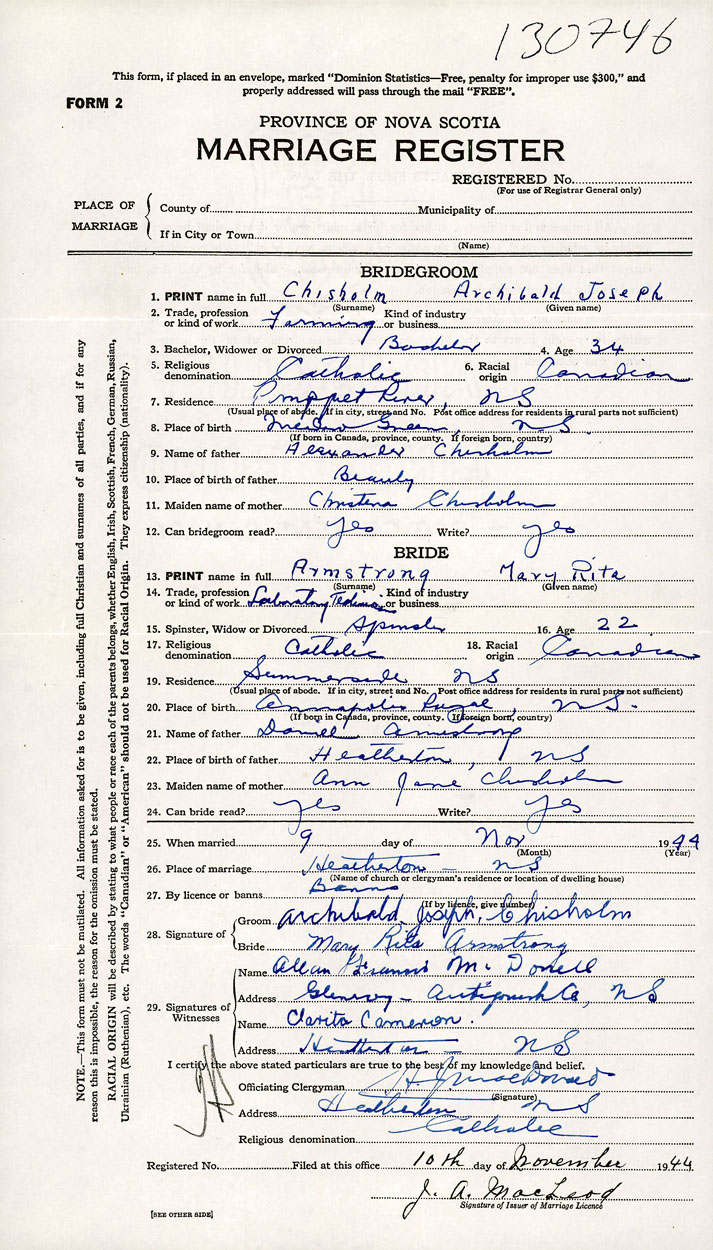 130746
This form, if placed in an envelope, marked "Dominion Statistics—Free, penalty for improper use $300," and
properly addressed will pass through the mail "FREE".
FORM 2
PROVINCE OF NOVA SCOTIA
MARRIAGE REGISTER
REGISTERED No.
(For use of Registrar General only)
PLACE OF MARRIAGE
County of Municipality of
If in City or Town
(Name)
BRIDEGROOM
1. PRINT name in full Chisholm Archibald Joseph
(Surname) (Given name)
2. Trade, profession or kind of work Farming Kind of industry or business
3. Bachelor, Widower or Divorced Bachelor 4. Age 34
5. Religious denomination Catholic 6. Racial origin Canadian
7. Residence River, NS
(Usual place of abode. If in city, street and No. Post office address for residents in rural parts not sufficient)
8. Place of birth Green, NS.
(If born in Canada, province, county. If foreign born, country)
9. Name of father Alexander Chisholm
10. Place of birth of father Beauly
11. Maiden name of mother Christena Chisholm
12. Can bridegroom read? yes Write? yes
BRIDE
13. PRINT name in full Armstrong Mary Rita
(Surname) (Given name)
14. Trade, profession or kind of work Laboratory Kind of industry or business
15. Spinster, Widow or Divorced Spinster 16. Age 22
17. Religious denomination Catholic 18. Racial origin Canadian
19. Residence Summerside NS
(Usual place of abode. If in city, street and No. Post office address for residents in rural parts not sufficient)
20. Place of birth Annapolis Royal, NS.
(If born in Canada, province, county. If foreign born, country)
21. Name of father Daniel Armstrong
22. Place of birth of father Heatherton, NS
23. Maiden name of mother Ann Jane Chisholm
24. Can bride read? yes Write? yes
25. When married 9 day of Nov 1944
(Month) (Year)
26. Place of marriage Heatherton – NS
(Name of church or clergyman's residence or location of dwelling house)
27. By licence or banns Banns
(If by licence, give number)
28. Signature of
Groom Archibald Joseph, Chisholm
Bride Mary Rita Armstrong
29. Signatures of Witnesses
Name Allan Francis McDonell
Address Glenroy – Antigonish Co, NS
Name Clarita Cameron.
Address Heatherton – NS
I certify the above stated particulars are true to the best of my knowledge and belief.
Officiating Clergyman MacDonald
(Signature)
Address Heatherton NS
Religious denomination Catholic
Registered No. Filed at this office 10th day of November 1944
J. A. MacLeod
Signature of Issuer of Marriage Licence
[SEE OTHER SIDE]
NOTE.—This form must not be mutilated. All information asked for is to be given, including full Christian and surnames of all parties, and if for any
reason this is impossible, the reason for the omission must be stated.
RACIAL ORIGIN will be described by stating to what people or race each of the parents belongs, whether English, Irish, Scottish, French, German, Russian,
Ukrainian (Ruthenian), etc. The words "Canadian" or "American" should not be used for Racial Origin. They express citizenship (nationality).